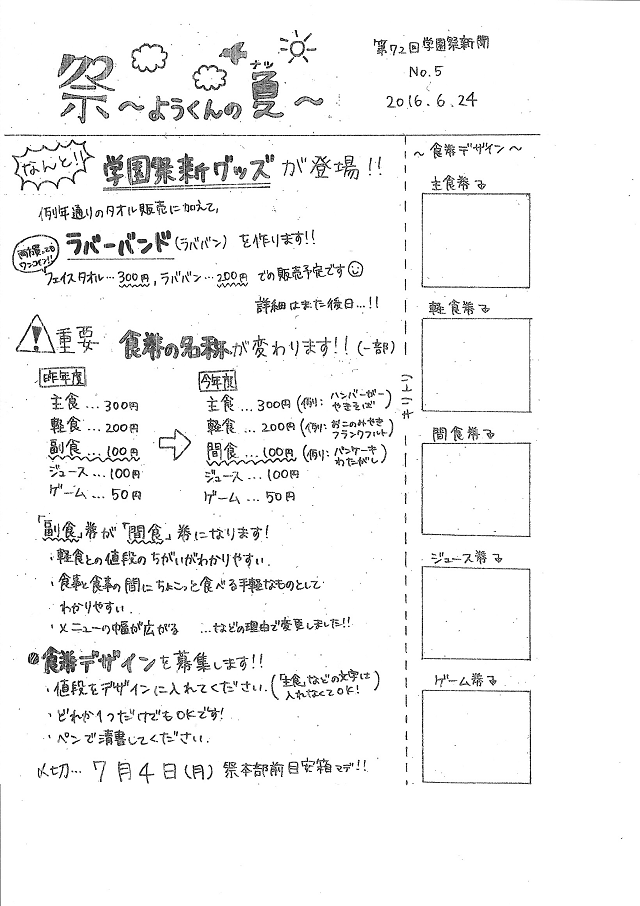 第72回学園祭新聞
No.5
2016.6.24
祭～ようくんの夏～
ナツ
なんと!!
学園祭新グッズが登場!!
例年通りのタオル販売に加えて,
ラバーバンド(ラババン) を作ります!!
両方買っても
ワンコイン!!
フェイスタオル…300円, ラババン…200円 での販売予定です
詳細はまた後日…!!
! 重要 食券の名称が変わります!! (一部)
昨年度
主食…300円
軽食…200円
副食…100円
ジュース…100円
ゲーム…50円
今年度
主食…300円 (例: ハンバーガー
やきそば)
軽食…200円 (例: おこのみやき
フランクフルト)
間食…100円 (例: パンケーキ
わたがし)
ジュース…100円
ゲーム…50円
「副食」券が「間食」券になります!
・軽食との値段のちがいがわかりやすい.
・食事と食事の間にちょこっと食べる手軽なものとして
わかりやすい.
・メニューの幅が広がる …などの理由で変更しました!!
食券デザインを募集します!!
・値段をデザインに入れてください. (「主食」などの文字は
入れなくてOK!)
・どれか1つだけでもOKです!
・ペンで清書してください.
〆切… 7月4日(月) 祭本部前目安箱マデ!!
キリトリ
～食券デザイン～
主食券
軽食券
間食券
ジュース券
ゲーム券